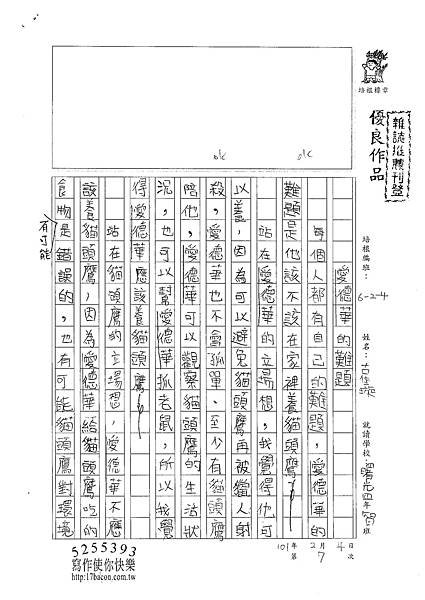 培根標章
雜誌推薦刊登
優良作品
培根編班：6-2-4
姓名：
就讀學校：
四年
班
ok
ok
愛德華的難題
每個人都有自己的難題，愛德華的
難題是他該不該在家裡養貓頭鷹！
站在愛德華的立場想，我覺得他可
以養，因為可以避免貓頭鷹再被獵人射
殺，愛德華也不會孤單、至少有貓頭鷹
陪他，愛德華可以觀察貓頭鷹的生活狀
況，也可以幫愛德華抓老鼠，所以我覺
得愛德華應該養貓頭鷹！
站在貓頭鷹的立場想，愛德華不應
該養貓頭鷹，因為愛德華給貓頭鷹吃的
食物是錯誤的，也有可能貓頭鷹對環境
有可能
101年2月4日
第7次
5255393
寫作使你快樂
http://17bacon.com.tw